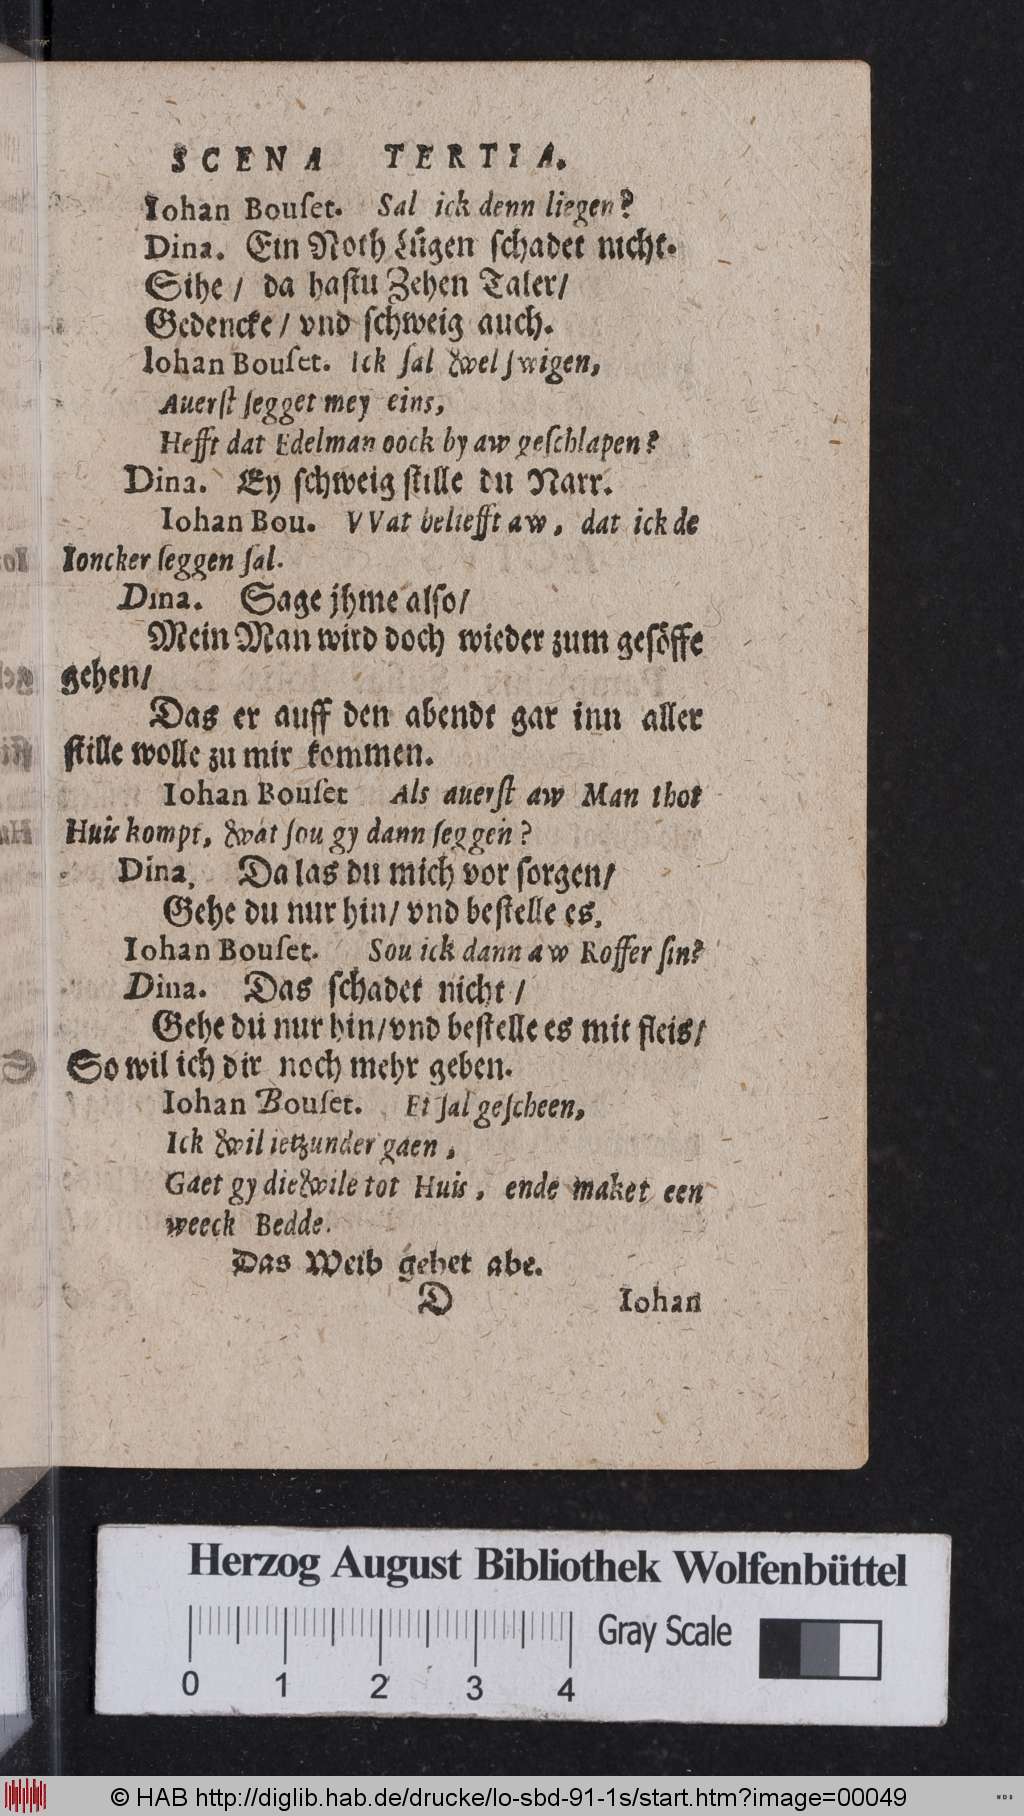 SCENA TERTIA.
Iohan Bouſet. Sal ick denn liegen?
Dina. Ein Noth Lügen ſchadet nicht.
Sihe / da haſtu Zehen Taler/
Gedencke / vnd ſchweig auch.
Iohan Bouſet. Ick ſal wel ſwigen,
Auerſt ſegget mey eins,
Hefft dat Edelman oock by aw geſchlapen?
Dina. Ey ſchweig ſtille du Narr.
Iohan Bou. VVat beliefft aw, dat ick de
Ioncker ſeggen ſal.
Dina. Sage jhme alſo/
Mein Man wird doch wieder zum geſöffe
gehen/
Das er auff den abendt gar inn aller
ſtille wolle zu mir kommen.
Iohan Bouſet Als auerſt aw Man thot
Huis kompt, wat ſou gy dann ſeggen?
Dina, Da las du mich vor ſorgen/
Gehe du nur hin/ vnd beſtelle es,
Iohan Bouſet. Sou ick dann aw Koffer ſin?
Dina. Das ſchadet nicht /
Gehe du nur hin/vnd beſtelle es mit fleis/
So wil ich dir noch mehr geben.
Iohan Bouſet. Et ſal geſcheen,
Ick wil ietzunder gaen,
Gaet gy die wile tot Huis, ende maket een
weeck Bedde.
Das Weib gehet abe.
D Iohan
Herzog August Bibliothek Wolfenbüttel
0 1 2 3 4
Gray Scale
© HAB http://diglib.hab.de/drucke/lo-sbd-91-1s/start.htm?image=00049